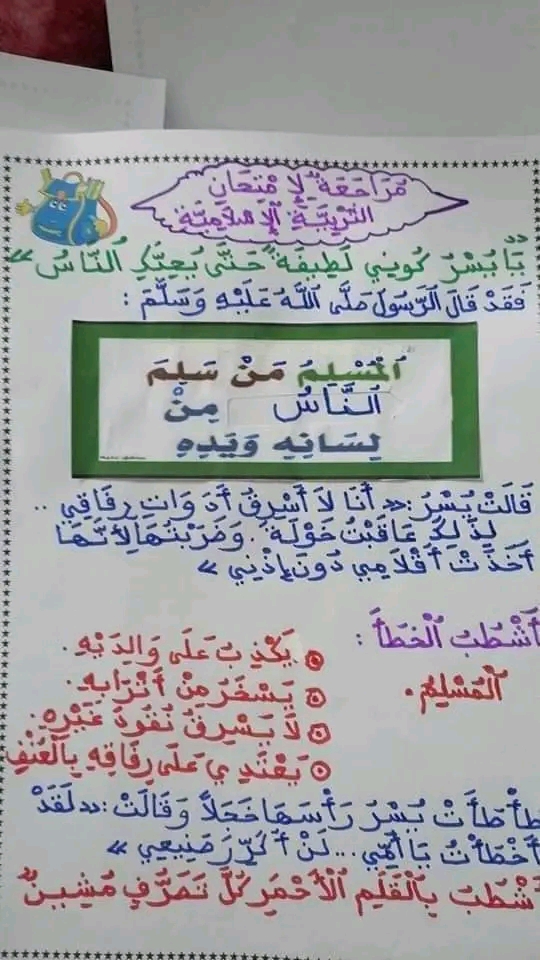 مُرَاجَعَةٌ لِإِمْتِحَانِ
التَّرْبِيَّةِ الْإِسْلَامِيَّةِ
يَا يُسْرُ كُونِي لَطِيفَةً حَتَّى يُحِبَّكِ النَّاسُ »
فَقَدْ قَالَ الرَّسُولُ صَلَّى اللَّهُ عَلَيْهِ وَسَلَّمَ :
الْمُسْلِمُ مَنْ سَلِمَ
النَّاسُ مِنْ
لِسَانِهِ وَيَدِهِ
قَالَتْ يُسْرُ : « أَنَا لَا أَسْرِقُ أَدَوَاتِ رِفَاقِي ..
لِذَلِكَ عَاقَبْتُ خَوْلَةَ . وَضَرَبْتُهَا لِأَنَّهَا
أَخَذَتْ أَقْلَامِي دُونَ إِذْنِي »
أَشْطُبُ الْخَطَأَ :
الْمُسْلِمُ .
يَكْذِبُ عَلَى وَالِدَيْهِ .
يَسْخَرُ مِنْ أَتْرَابِهِ .
لَا يَسْرِقُ نُقُودَ غَيْرِهِ .
يَعْتَدِي عَلَى رِفَاقِهِ بِالْعُنْفِ
طَأْطَأَتْ يُسْرُ رَأْسَهَا خَجَلًا وَقَالَتْ : « لَقَدْ
أَخْطَأْتُ يَا أُمِّي ... لَنْ أُكَرِّرَ صَنِيعِي »
أَشْطُبُ بِالْقَلَمِ الْأَحْمَرِ كُلَّ تَصَرُّفٍ مُشِينٍ